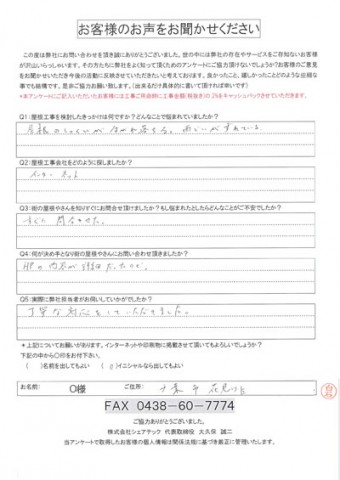 お客様のお声をお聞かせください
この度は弊社にお問い合わせを頂き誠にありがとうございました。世の中には弊社の存在やサービスをご存知ないお客様
が沢山いらっしゃいます。その方たちに弊社をよく知って頂くためのアンケートにご協力頂けないでしょうか?お客様のご意見
をお聞かせいただき今後の活動に反映させていただきたいと考えております。良かったこと、嬉しかったことどのような些細な
事でも結構です。是非ご協力お願い致します。(出来るだけ具体的に書いて頂ければ幸いです)
Q1:屋根工事を検討したきっかけは何ですか?どんなことで悩まれていましたか?
Q2:屋根工事会社をどのように探しましたか?
Q3:街の屋根やさんを知りすぐにお問合せ頂けましたか?もし悩まれたとしたらどんなことがご不安でしたか?
すぐに問合わせた。
Q4:何が決め手となり街の屋根やさんにお問い合わせ頂きましたか?
HPの内容が
Q5:実際に弊社担当者がお伺いしていかがでしたか?
丁寧な対応をしていただきました。
*上記についてお願いがあります。インターネットや印刷物に掲載させて頂いてもよろしいでしょうか?
下記の中から○印をお付下さい。
( )名前を出してもよい (○)イニシャルなら出してもよい
お名前: O様 ご住所: 千葉市花見川区
FAX 0438-60-7774
ご協力ありがとうございました。
株式会社シェアテック 代表取締役 大久保 誠二
当アンケートで取得したお客様の個人情報は関係法規に基づき厳正に管理いたします。